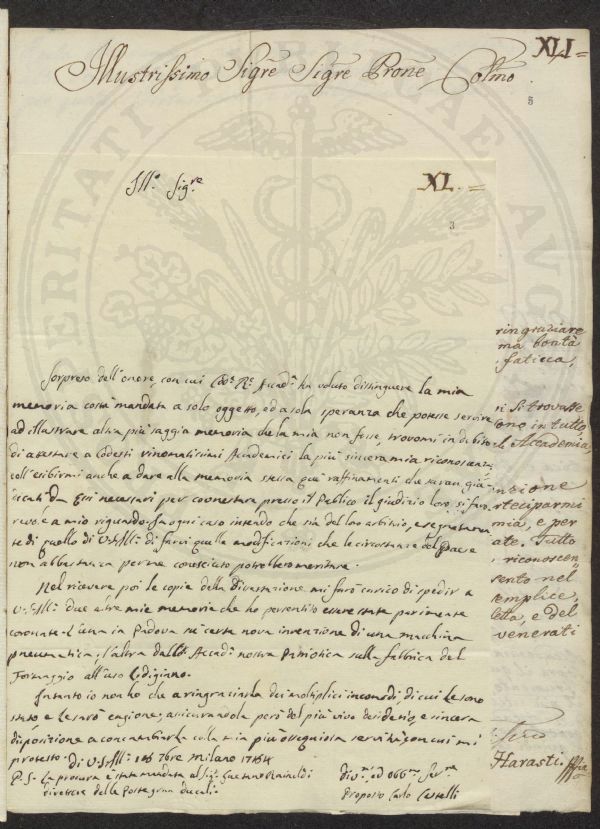 XLI =
Illustrissimo Sigre Sigre Prone Colmo
5
Ill.o Sig.re
XL. =
3
Sorpreso dell'onore, con cui Cod.a Rl.e Accad.a ha voluto distinguere la mia
memoria costà mandata a solo oggetto, ed a sola speranza che potesse servire
ad illustrare altra più saggia memoria che la mia non fosse, trovomi in debito
di attestare a codesti rinomatissimi Accademici la più sincera mia riconoscenza
coll'esibirmi anche a dare alla memoria stessa que' raffinamenti che saran giu-
dicati da Essi necessari per coonestare presso il Publico il giudizio loro sì favo-
revole a mio riguardo. In ogni caso intendo che sia del loro arbitrio, e segnatamen-
te di quello di V.S. Ill. di farvi quelle modificazioni che le circostanze del Paese
non abbastanza per me conosciuto potrebbero meritare.
Nel ricevere poi le copie della Dissertazione mi farò carico di spedir a
V.S. Ill. due altre mie memorie che ho per sentito essere state parimente
coronate l'una in Padova su certa nova invenzione di una macchina
pneumatica, l'altra dall'Accad.a nostra Patriotica sulla fabbrica del
Formaggio all'uso Lodigiano.
Intanto io non ho che a ringraziarla dei moltiplici incomodi, di cui le sono
stato e le sarò cagione, assicurandola però del più vivo desiderio, e sincera
disposizione a concambiarla colla mia più ossequiosa servitù con cui mi
protesto. Di V.S. Ill. 7bre Milano 1784
P.S. La procura è stata mandata al Sig.r Gaetano Rainaldi
direttore della Posta Ducali.
Div.mo ed Obb.mo Ser.re
Proposto Carlo Castelli
ringraziare
ma bontà
fatica,
si trovasse
sono in tutto
Accademia,
nzione
rteciparmi
mia, e per
ate. Tutto
riconoscen
sento nel
emplice,
letta, e del
venerati
Servo
Harasti